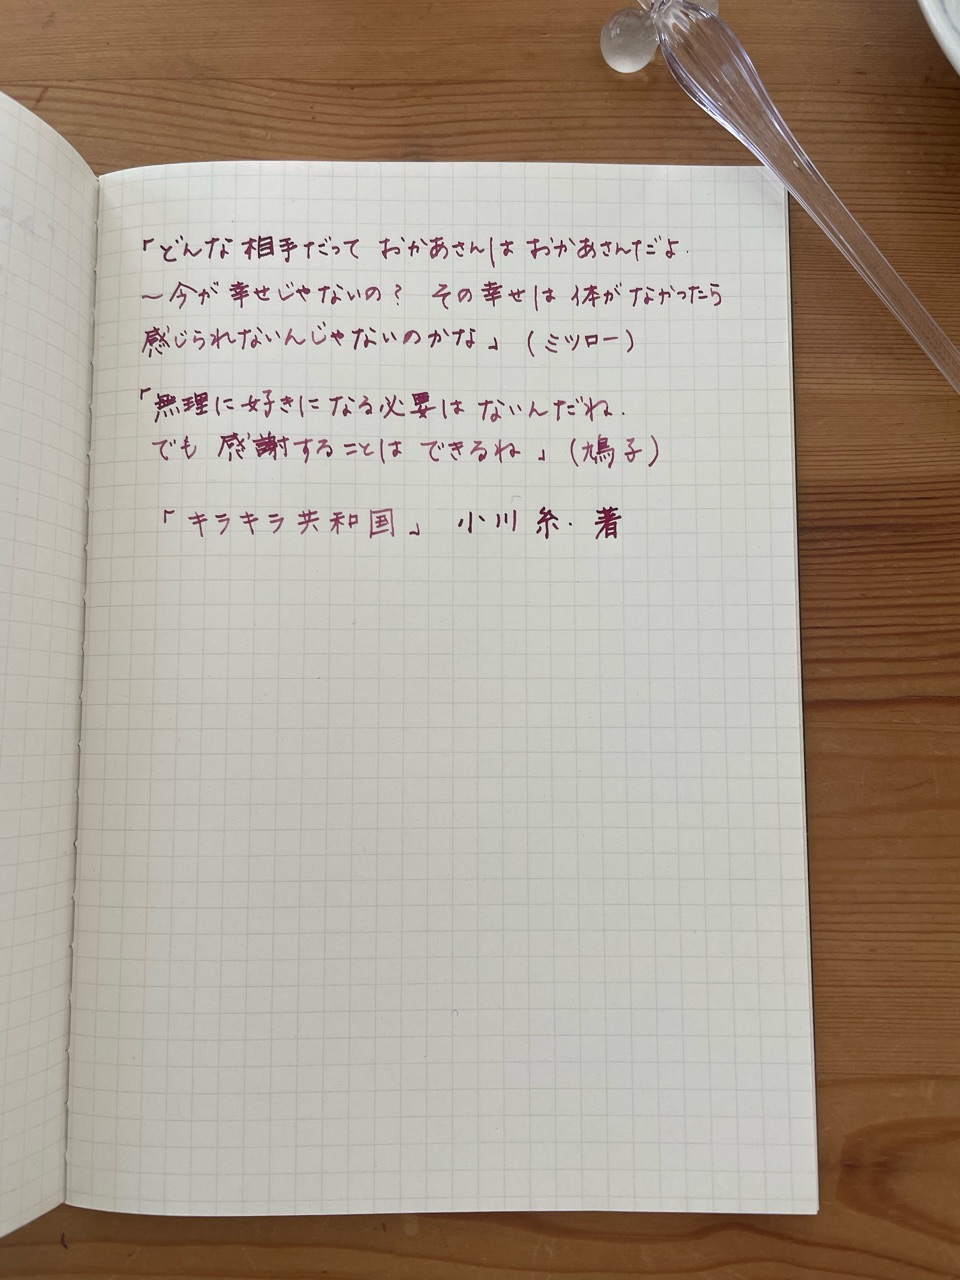 「どんな相手だって おかあさんは おかあさんだよ.
〜今が幸せじゃないの? その幸せは 体がなかったら
感じられないんじゃないのかな」(ミツロー)
「無理に好きになる必要は ないんだね.
でも 感謝することは できるね」(鳩子)
「キラキラ共和国」 小川糸.著